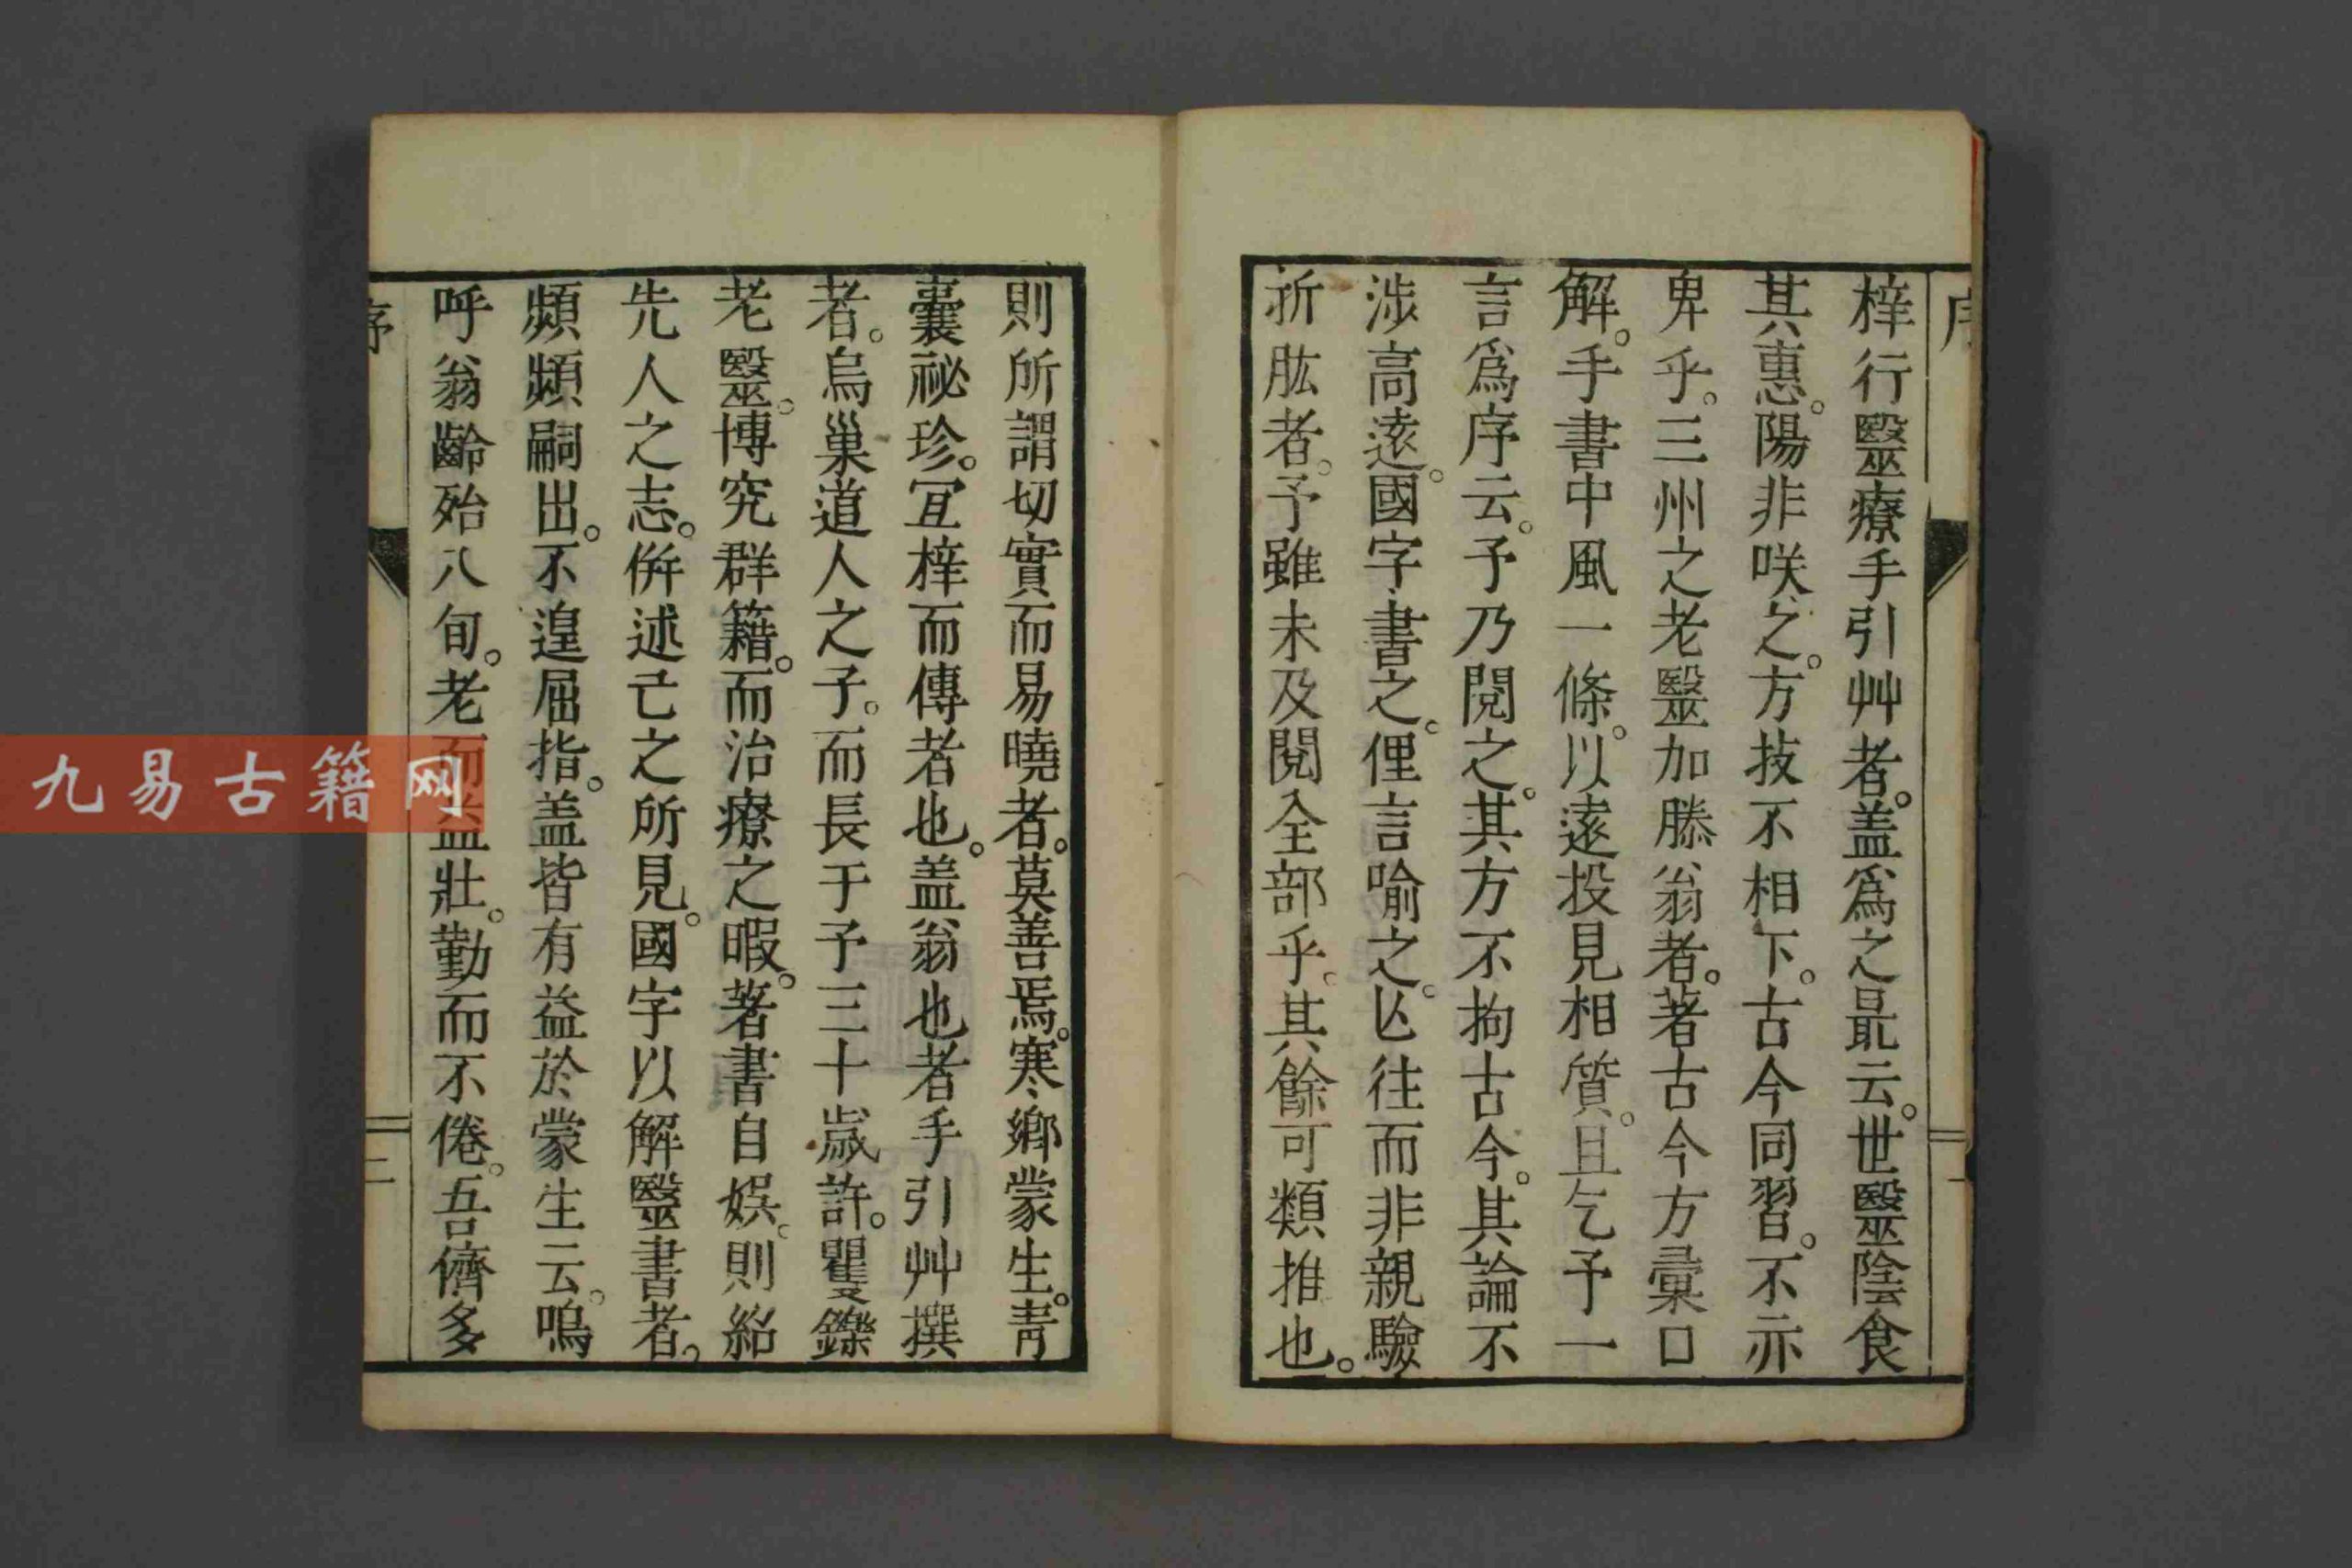 梓行毉療手引艸者。盖爲之最云。世毉陰食
其惠。陽非咲之。方技不相下。古今同習。不亦
卑乎。三州之老毉加藤翁者。著古今方彙口
解。手書中風一條。以遠投見相質。且乞予一
言爲序云。予乃閱之。其方不拘古今。其論不
涉高遠。國字書之。俚言喻之。以往而非親驗
折肱者。予雖未及閱全部乎。其餘可類推也。
則所謂切實而易曉者。莫善焉。寒鄉蒙生。青
囊祕珍。宜梓而傳者也。盖翁也者手引艸撰
者。烏巢道人之子。而長于予三十歲許。矍鑠
老毉。博究群籍。而治療之暇。著書自娯。則紹
先人之志。併述己之所見。國字以解毉書者。
頻頻嗣出。不遑屈指。盖皆有益於蒙生云。嗚
呼翁齡殆八旬。老而益壯。勤而不倦。吾儕多
序
二
九易古籍网